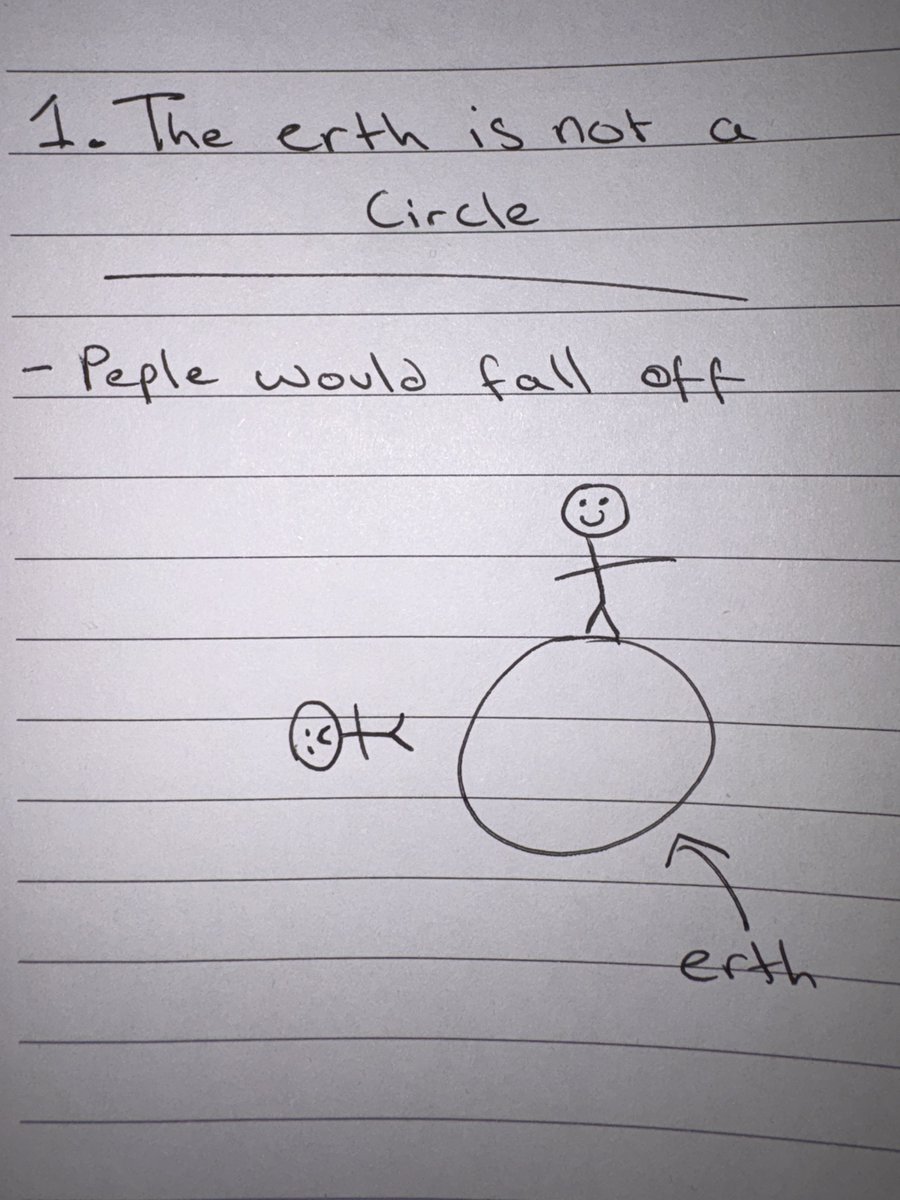 1. The erth is not a
Circle
- Peple would fall off
erth